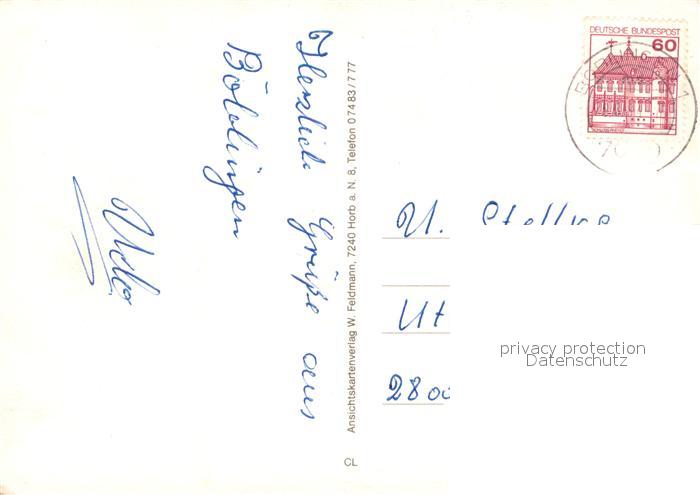 Herzlich Grüße aus
Böblingen
Udo
Ansichtskartenverlag W. Feldmann, 7240 Horb a. N. 8, Telefon 0 74 83 / 7 77
CL
DEUTSCHE BUNDESPOST
60
U.
Ut
2800
privacy protection
Datenschutz